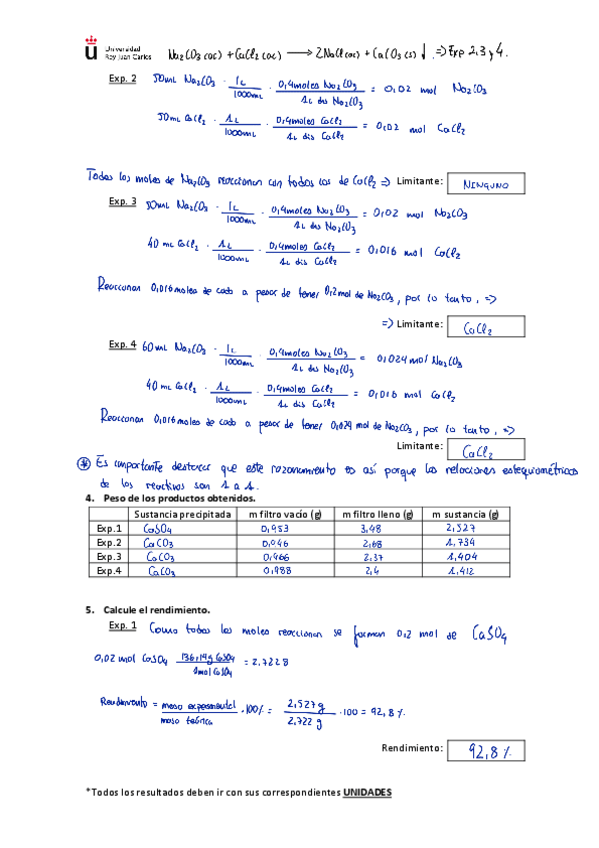 Universidad
Rey Juan Carlos
Na₂CO₃ (ac) + CaCl₂ (ac) ⟶ 2NaCl (ac) + CaCO₃ (s) ↓ ⇒ Exp 2, 3 y 4.
Exp. 2 50mL Na₂CO₃ · 1L/1000mL · 0,4moles Na₂CO₃/1L dis Na₂CO₃ = 0,02 mol Na₂CO₃
50mL CaCl₂ · 1L/1000mL · 0,4moles CaCl₂/1L dis CaCl₂ = 0,02 mol CaCl₂
Todas los moles de Na₂CO₃ reaccionan con todos los de CaCl₂ ⇒ Limitante: NINGUNO
Exp. 3 50mL Na₂CO₃ · 1L/1000mL · 0,4moles Na₂CO₃/1L dis Na₂CO₃ = 0,02 mol Na₂CO₃
40 mL CaCl₂ · 1L/1000mL · 0,4moles CaCl₂/1L dis CaCl₂ = 0,016 mol CaCl₂
Reaccionan 0,016 moles de cada a pesar de tener 0,2 mol de Na₂CO₃, por lo tanto, ⇒
⇒ Limitante: CaCl₂
Exp. 4 60mL Na₂CO₃ · 1L/1000mL · 0,4moles Na₂CO₃/1L dis Na₂CO₃ = 0,024 mol Na₂CO₃
40 mL CaCl₂ · 1L/1000mL · 0,4moles CaCl₂/1L dis CaCl₂ = 0,016 mol CaCl₂
Reaccionan 0,016 moles de cada a pesar de tener 0,024 mol de Na₂CO₃, por lo tanto, ⇒
Limitante: CaCl₂
* Es importante destacar que este razonamiento es así porque las relaciones estequiométricas
de los reactivos son 1 a 1.
4. Peso de los productos obtenidos.
Sustancia precipitada m filtro vacío (g) m filtro lleno (g) m sustancia (g)
Exp.1 CaSO₄ 0,953 3,48 2,527
Exp.2 CaCO₃ 0,946 2,68 1,734
Exp.3 CaCO₃ 0,966 2,37 1,404
Exp.4 CaCO₃ 0,988 2,4 1,412
5. Calcule el rendimiento.
Exp. 1 Como todos los moles reaccionan se forman 0,2 mol de CaSO₄
0,02 mol CaSO₄ 136,14g CaSO₄/1mol CaSO₄ = 2,7228
Rendimiento = masa experimental/masa teórica · 100% = 2,527 g/2,722 g · 100 = 92,8 %
Rendimiento: 92,8 %
*Todos los resultados deben ir con sus correspondientes UNIDADES